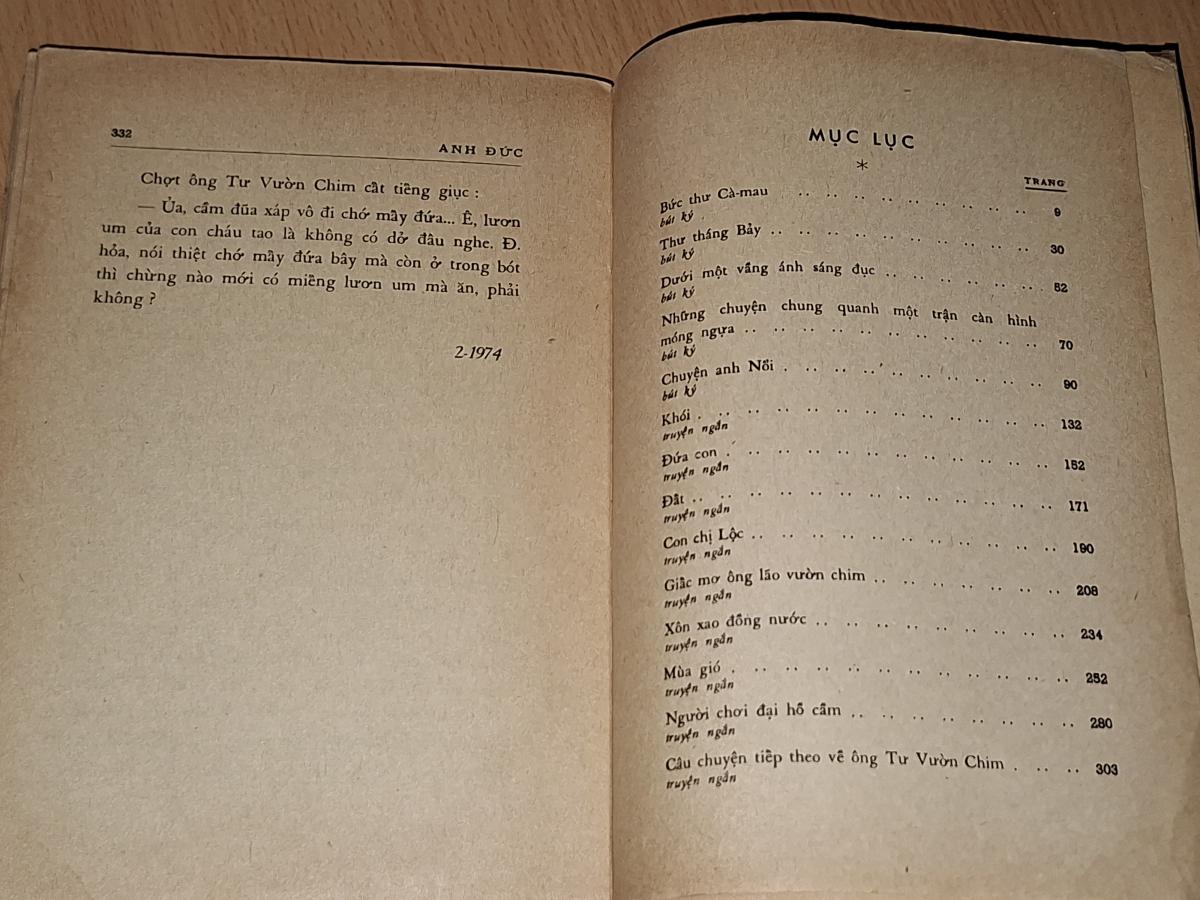 332
ANH ĐỨC
Chợt ông Tư Vườn Chim cất tiếng giục :
— Ủa, cầm đũa xáp vô đi chớ mầy đứa... Ê, lươn
um của con cháu tao là không có dở đâu nghe. Đ.
hỏa, nói thiệt chớ mầy đứa bây mà còn ở trong bót
thì chừng nào mới có miếng lươn um mà ăn, phải
không ?
2-1974
MỤC LỤC
*
TRANG
Bức thư Cà-mau .. .. .. .. .. .. .. .. 9
bút ký
Thư tháng Bảy .. .. .. .. .. .. .. .. .. 30
bút ký
Dưới một vầng ánh sáng đục .. .. .. .. .. . 52
bút ký
Những chuyện chung quanh một trận càn hình
móng ngựa .. .. .. .. .. .. .. .. .. .. 70
bút ký
Chuyện anh Nối . .. .. .. .. .. .. .. .. 90
bút ký
Khói . .. .. .. .. .. .. .. .. .. .. .. 132
truyện ngắn
Đứa con . .. .. .. .. .. .. .. .. .. .. 152
truyện ngắn
Đất .. .. .. .. .. .. .. .. .. .. .. .. 171
truyện ngắn
Con chị Lộc .. .. .. .. .. .. .. .. .. .. 190
truyện ngắn
Giấc mơ ông lão vườn chim .. .. .. .. .. .. .. 208
truyện ngắn
Xôn xao đồng nước .. .. .. .. .. .. .. .. 234
truyện ngắn
Mùa gió . .. .. .. .. .. .. .. .. .. .. 252
truyện ngắn
Người chơi đại hồ cầm .. .. .. .. .. .. .. .. 280
truyện ngắn
Câu chuyện tiếp theo về ông Tư Vườn Chim . .. .. 303
truyện ngắn